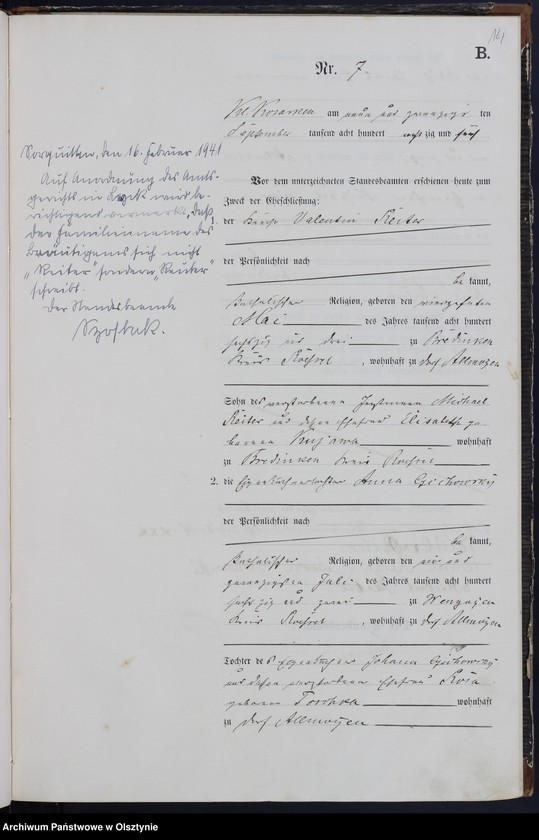 141
B.
Nr. 7
Kl. Kosarken am neun und zwanzigs ten
September tausend acht hundert acht zig und fünf
Sorquitten, den 16. Februar 1941
Auf Anordnung des Amts-
gerichts in Lyck wird be-
richtigend vermerkt, daß
der Familienname des
Bräutigams sich nicht
"Reiter" sondern "Reuter"
schreibt.
Der Standesbeamte
Szostak.
Vor dem unterzeichneten Standesbeamten erschienen heute zum
Zweck der Eheschließung:
1. der Valentin Reiter
der Persönlichkeit nach
be kannt,
katholischer Religion, geboren den vierzehnten
Mai des Jahres tausend acht hundert
sechszig und drei zu Bredinken
Kreis Rössel, wohnhaft zu Dorf Allmoyen
Sohn des verstorbenen Michael
Reiter und dessen Ehefrau Elisabeth ge
borenen Kujawa wohnhaft
zu Bredinken Kreis Rössel
2. die Eigenkäthnertochter Anna Cichowsky
der Persönlichkeit nach
be kannt,
katholischer Religion, geboren den ein und
zwanzigsten Juli des Jahres tausend acht hundert
sechszig und zwei zu Wengoyen
Kreis Rössel, wohnhaft zu Dorf Allmoyen
Tochter des Eigenkäthner Johann Cichowsky
und dessen verstorbenen Ehefrau Rosa
geborenen Toschka wohnhaft
zu Dorf Allmoyen
Archiwum Państwowe w Olsztynie